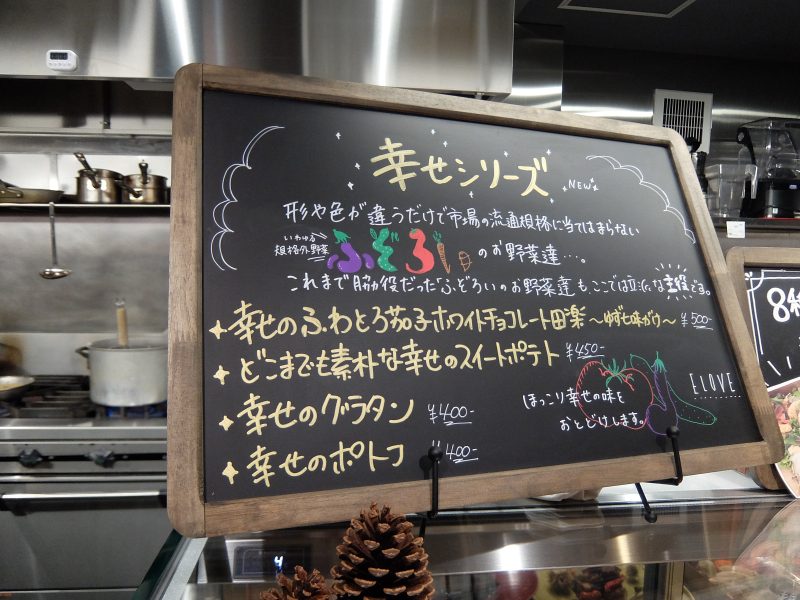 幸せシリーズ
NEW
形や色が違うだけで市場の流通規格に当てはまらない
いわゆる
規格外野菜
ふぞろいのお野菜達…。
これまで脇役だったふぞろいのお野菜達も、ここでは立派な主役です。
幸せのふわとろ茄子ホワイトチョコレート田楽〜ゆず七味がけ〜 ¥500-
どこまでも素朴な幸せのスイートポテト ¥450-
幸せのグラタン ¥400-
幸せのポトフ ¥400-
ほっこり幸せの味を
おとどけします。
ELOVE
8種